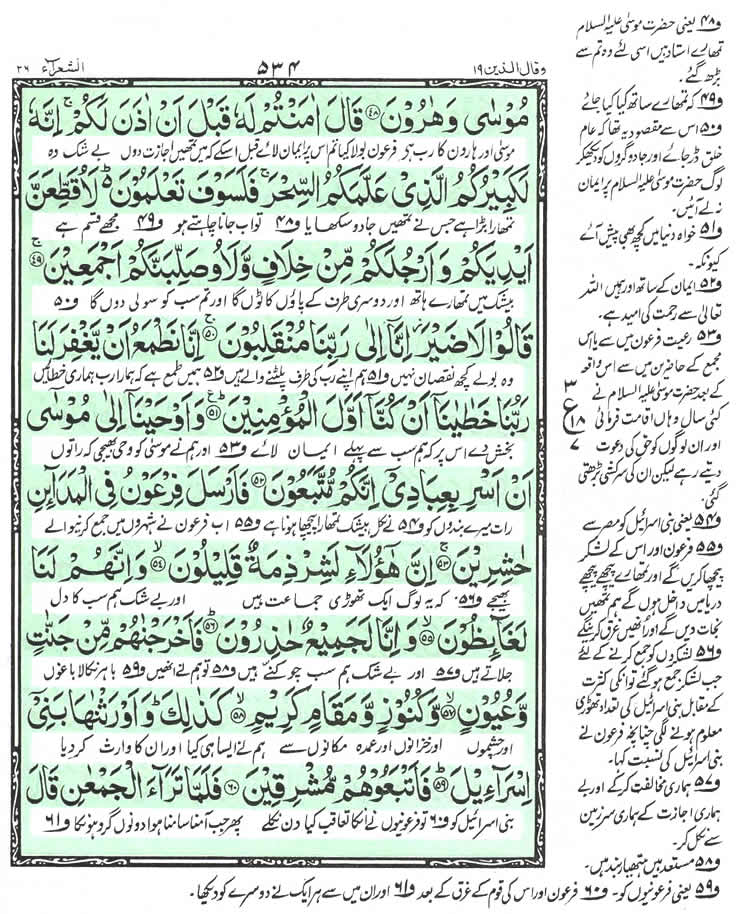 وقال الذین ۱۹
۵۳۴
الشعرآء ۲۶
مُوْسٰى وَهٰرُوْنَ ﴿۴۸﴾ قَالَ اٰمَنْتُمْ لَهٗ قَبْلَ اَنْ اٰذَنَ لَكُمْ ۚ اِنَّهٗ
موسٰی اور ہارون کا رب ہے فرعون بولا کیا تم اس پر ایمان لائے قبل اسکے کہ میں تمھیں اجازت دوں بے شک وہ
لَكَبِيْرُكُمُ الَّذِيْ عَلَّمَكُمُ السِّحْرَ ۚ فَلَسَوْفَ تَعْلَمُوْنَ ؕ لَاُقَطِّعَنَّ
تمھارا بڑا ہے جس نے تمھیں جادو سکھایا و۴۸ تو اب جانا چاہتے ہو و۴۹ مجھے قسم ہے
اَيْدِيَكُمْ وَاَرْجُلَكُمْ مِّنْ خِلَافٍ وَّلَاُوصَلِّبَنَّكُمْ اَجْمَعِيْنَ ﴿۴۹﴾ ۚ
بیشک میں تمھارے ہاتھ اور دوسری طرف کے پاؤں کاٹوں گا اور تم سب کو سولی دوں گا و۵۰
قَالُوْا لَا ضَيْرَ ؗ اِنَّاۤ اِلٰى رَبِّنَا مُنْقَلِبُوْنَ ﴿۵۰﴾ ۚ اِنَّا نَطْمَعُ اَنْ يَّغْفِرَ لَنَا
وہ بولے کچھ نقصان نہیں و۵۱ ہم اپنے رب کی طرف پلٹنے والے ہیں و۵۲ ہمیں طمع ہے کہ ہمارا رب ہماری خطائیں
رَبُّنَا خَطٰيٰنَاۤ اَنْ كُنَّاۤ اَوَّلَ الْمُؤْمِنِيْنَ ﴿۵۱﴾ ؕ وَاَوْحَيْنَاۤ اِلٰى مُوْسٰۤى
بخش دے اس پر کہ ہم سب سے پہلے ایمان لائے و۵۳ اور ہم نے موسٰی کو وحی بھیجی کہ راتوں
اَنْ اَسْرِ بِعِبَادِيْۤ اِنَّكُمْ مُّتَّبَعُوْنَ ﴿۵۲﴾ فَاَرْسَلَ فِرْعَوْنُ فِى الْمَدَآىِٕنِ
رات میرے بندوں کو و۵۴ لے نکل بیشک تمھارا پیچھا ہونا ہے و۵۵ اب فرعون نے شہروں میں جمع کرنیوالے
حٰشِرِيْنَ ﴿۵۳﴾ ۚ اِنَّ هٰۤؤُلَآءِ لَشِرْذِمَةٌ قَلِيْلُوْنَ ﴿۵۴﴾ ۙ وَاِنَّهُمْ لَنَا
بھیجے و۵۶ کہ یہ لوگ ایک تھوڑی جماعت ہیں اور بے شک ہم سب کا دل
لَغَآىِٕظُوْنَ ﴿۵۵﴾ ۙ وَاِنَّا لَجَمِيْعٌ حٰذِرُوْنَ ﴿۵۶﴾ ؕ فَاَخْرَجْنٰهُمْ مِّنْ جَنّٰتٍ
جلاتے ہیں و۵۷ اور بے شک ہم سب چوکنے ہیں و۵۸ تو ہم نے انھیں و۵۹ باہر نکالا باغوں
وَّعُيُوْنٍ ﴿۵۷﴾ ۙ وَّكُنُوْزٍ وَّمَقَامٍ كَرِيْمٍ ﴿۵۸﴾ ۙ كَذٰلِكَ ؕ وَاَوْرَثْنٰهَا بَنِيْۤ
اور چشموں اور خزانوں اور عمدہ مکانوں سے ہم نے ایسا ہی کیا اور ان کا وارث کردیا
اِسْرَآءِيْلَ ﴿۵۹﴾ ؕ فَاَتْبَعُوْهُمْ مُّشْرِقِيْنَ ﴿۶۰﴾ فَلَمَّا تَرَآءَ الْجَمْعٰنِ قَالَ
بنی اسرائیل کو و۶۰ تو فرعونیوں نے انکا تعاقب کیا دن نکلے پھر جب آمنا سامنا ہوا دونوں گروہوں کا و۶۱
و۴۸ یعنی حضرت موسٰی علیہ السلام
تمھارے استاد ہیں اسی لئے وہ تم سے
بڑھ گئے۔
و۴۹ کہ تمھارے ساتھ کیا کیا جائے
و۵۰ اس سے مقصود یہ تھا کہ عام
خلق ڈر جائے اور جادوگروں کو دیکھکر
لوگ حضرت موسٰی علیہ السلام پر ایمان
نہ لے آئیں۔
و۵۱ خواہ دنیا میں کچھ بھی پیش آئے
کیونکہ۔
و۵۲ ایمان کے ساتھ اور ہمیں اللہ
تعالٰی سے رحمت کی امید ہے۔
و۵۳ رعیت فرعون میں سے یا اس
مجمع کے حاضرین میں سے اس واقعہ
کے بعد حضرت موسٰی علیہ السلام نے
کئی سال وہاں اقامت فرمائی
اور ان لوگوں کو حق کی دعوت
دیتے رہے لیکن ان کی سرکشی بڑھتی
گئی۔
۳
ع
۱۸
۷
و۵۴ یعنی بنی اسرائیل کو مصر سے
و۵۵ فرعون اور اس کے لشکر
پیچھا کریں گے اور تمھارے پیچھے پیچھے
دریا میں داخل ہوں گے ہم تمھیں
نجات دیں گے اور انھیں غرق کرینگے
و۵۶ لشکروں کو جمع کرنے کے لئے
جب لشکر جمع ہو گئے تو انکی کثرت
کے مقابل بنی اسرائیل کی تعداد تھوڑی
معلوم ہونے لگی چنانچہ فرعون نے
بنی اسرائیل کی نسبت کہا۔
و۵۷ ہماری مخالفت کرکے اور بے
ہماری اجازت کے ہماری سرزمین
سے نکل کر۔
و۵۸ مستعد ہیں ہتھیار بند ہیں۔
و۵۹ یعنی فرعونیوں کو۔ و۶۰ فرعون اور اس کی قوم کے غرق کے بعد و۶۱ اور ان میں سے ہر ایک نے دوسرے کو دیکھا۔